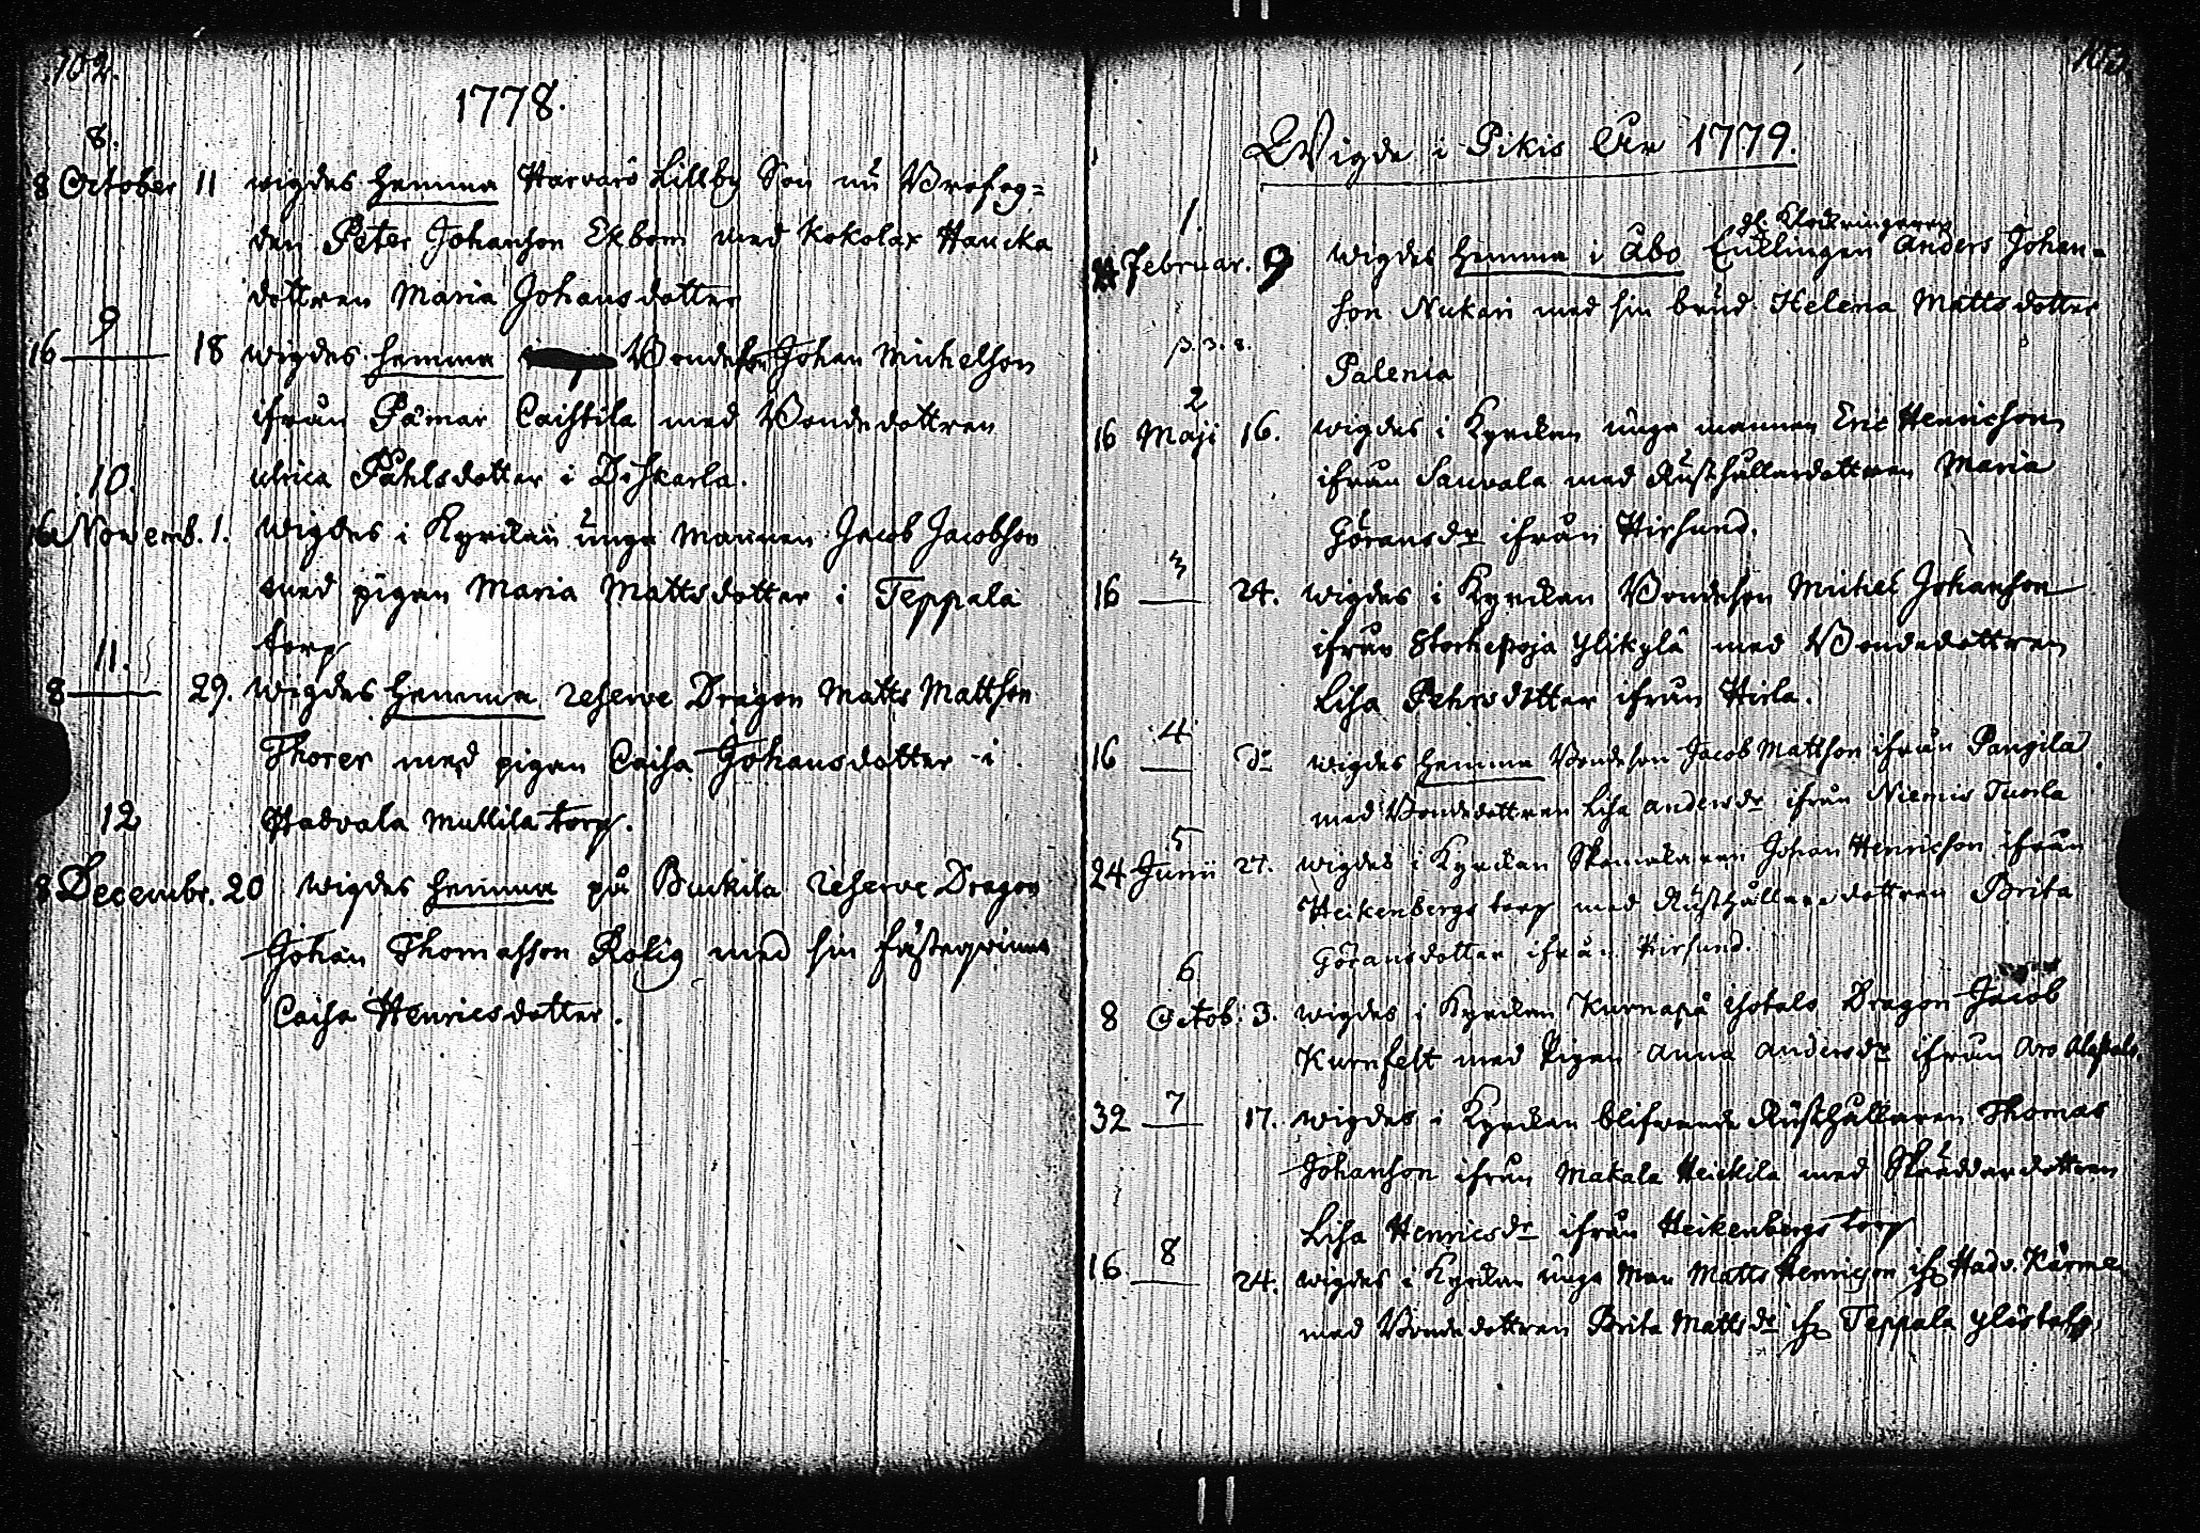 102.
1778.
8.
8 October 11 wigdes hemma Harvarö Lillby Son nu
den Peter Johanson Ekbom med Kokolax Haucka
dottren Maria Johansdotter
9
16 — 18 wigdes hemma Bondeson Johan Michelson
ifrån Pämar Caihtila med Bondedottren
Ulrica Påhlsdotter i Dihkarla.
10.
16 Novemb. 1. wigdes i Kyrckan unge Mannen Jacob Jacobson
med pigan Maria Mattsdotter i Teppala
torp
11.
8 — 29. wigdes hemma reserve Dragon Matts Mattson
Thorer med pigan Caisa Johansdotter i
Hadvala Mullila torp.
12
8 Decembr. 20 wigdes hemma på Buckila reserve Dragon
Johan Thomasson Rolig med sin fästeqvinna
Caisa Henricsdotter.
103.
Wigde i Pikis År 1779.
1.
Februar. 9 wigdes hemma i Åbo Enklingen Anders Johan-
son Nukari med sin brud Helena Mattsdotter
Palenia
2
16 Maji 16. wigdes i Kyrckan unge mannen Eric Henricson
ifrån Sauvala med Rusthållardottren Maria
Göransdr ifrån Hirsund.
3
16 — 24. wigdes i Kyrckan Bondeson Michel Johanson
ifrån Storhepoja Ylikylä med Bondedottren
Lisa Pehrsdotter ifrån Hirla.
4
16 — do wigdes hemma Bondeson Jacob Mattson ifrån Pangila
med Bondedottren Lisa Andersdr ifrån Niemis Tuorla
5
24 Junii 27. wigdes i Kyrckan Skomakaren Johan Henricson ifrån
Heikenbergs torp med Rusthållaredottren Brita
Göransdotter ifrån Hirsund.
6
8 Octob. 3. wigdes i Kyrckan Kurnapä Dragon Jacob
Kurnfelt med Pigan Anna Andersdr ifrån Aro
7
32 — 17. wigdes i Kyrckan blifwande Rusthållaren Thomas
Johanson ifrån Makala Heickila med Skräddardottren
Lisa Henricsdr ifrån Heikenbergs torp
8
16 — 24. wigdes i Kyrckan unge Man Matts Henricson ifr Hadv. Kärme
med Bondedottren Brita Mattsdr ifr Teppala Ylöstalo